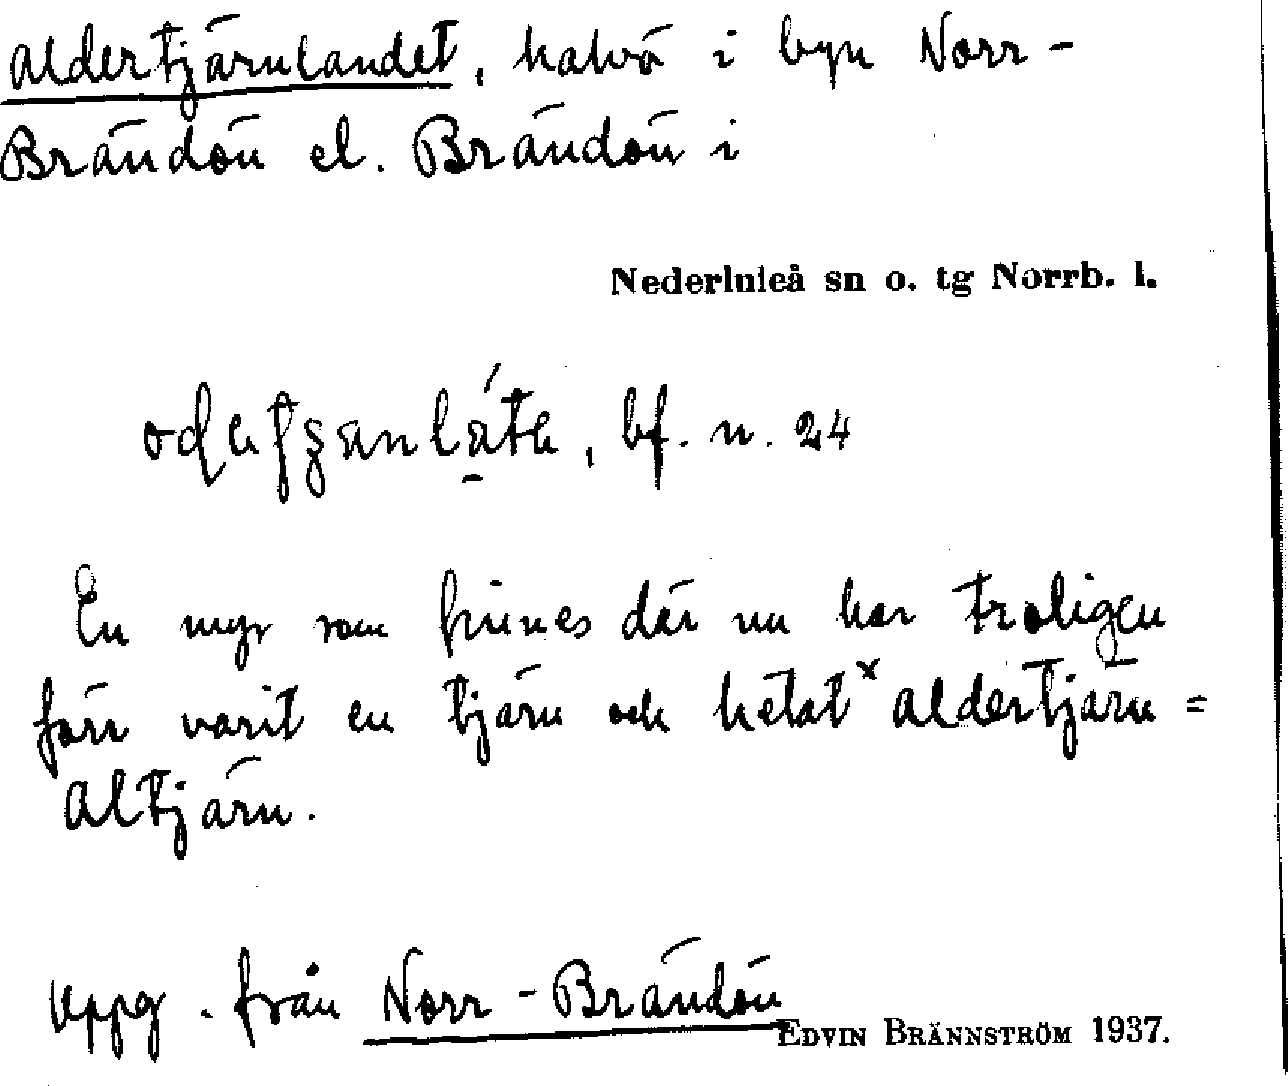 Aldertjärnlandet, halvö i byn Norr-
Brändön el. Brändön i
Nederluleå sn o. tg Norrb. l.
bf. n. 24
En myr som finnes där nu har troligen
förr varit en tjärn och hetat ˣAldertjärn =
Altjärn.
Uppg. från Norr-Brändön
EDVIN BRÄNNSTRÖM 1937.